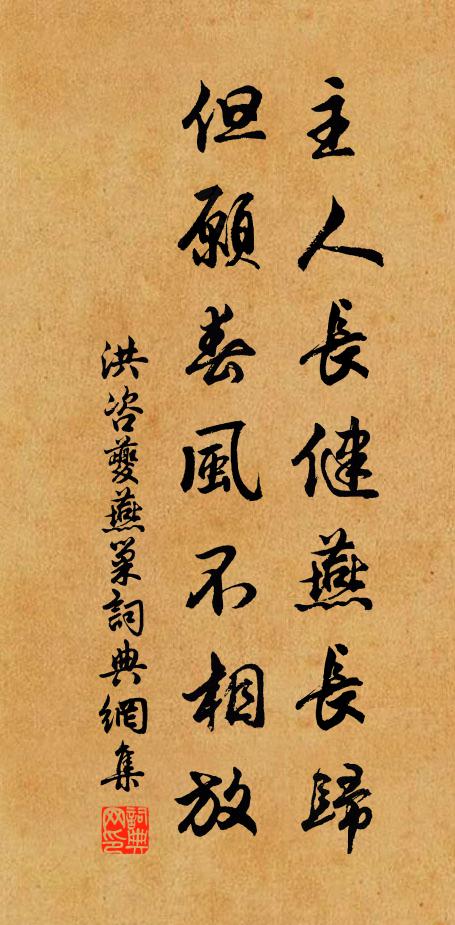 主人長健燕長歸
但願春風不相放
洪咨夔燕巢詞典網集
詞典网印